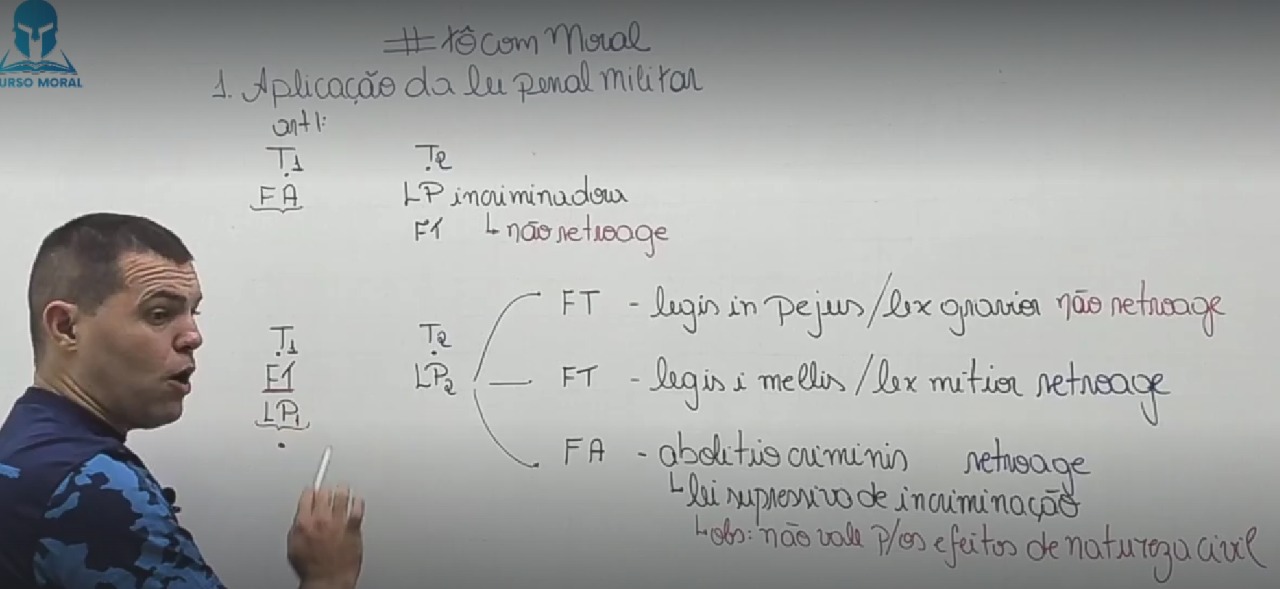 URSO MORAL
#tôcom Moral
1. Aplicação da lei penal militar
art 1:
T1 T2
FA LP incriminadora
FT ↳ não retroage
FT - legis in pejus/lex gravior não retroage
T1 T2
FT LP2 FT - legis i mellis/lex mitior retroage
LP1
FA - abolitio criminis retroage
↳ lei supressiva de incriminação
↳ obs: não vale p/os efeitos de natureza civil